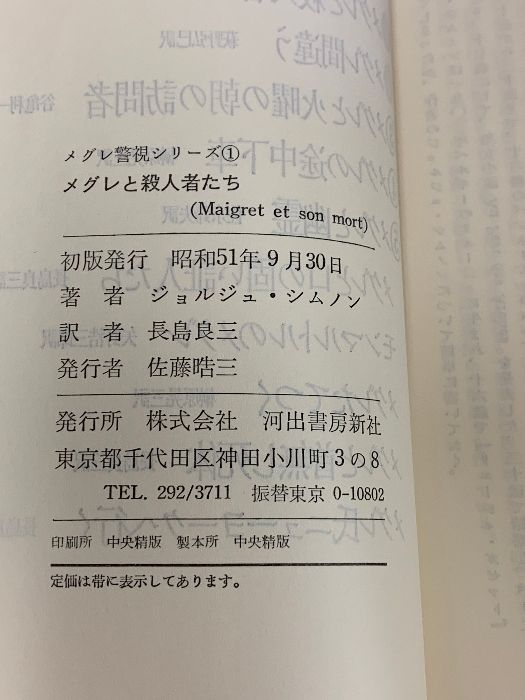 メグレ警視シリーズ①
メグレと殺人者たち
(Maigret et son mort)
初版発行　昭和51年9月30日
著　者　ジョルジュ・シムノン
訳　者　長島良三
発行者　佐藤晧三
発行所　株式会社　河出書房新社
東京都千代田区神田小川町3の8
TEL. 292/3711　振替東京 0-10802
印刷所　中央精版　製本所　中央精版
定価は帯に表示してあります。